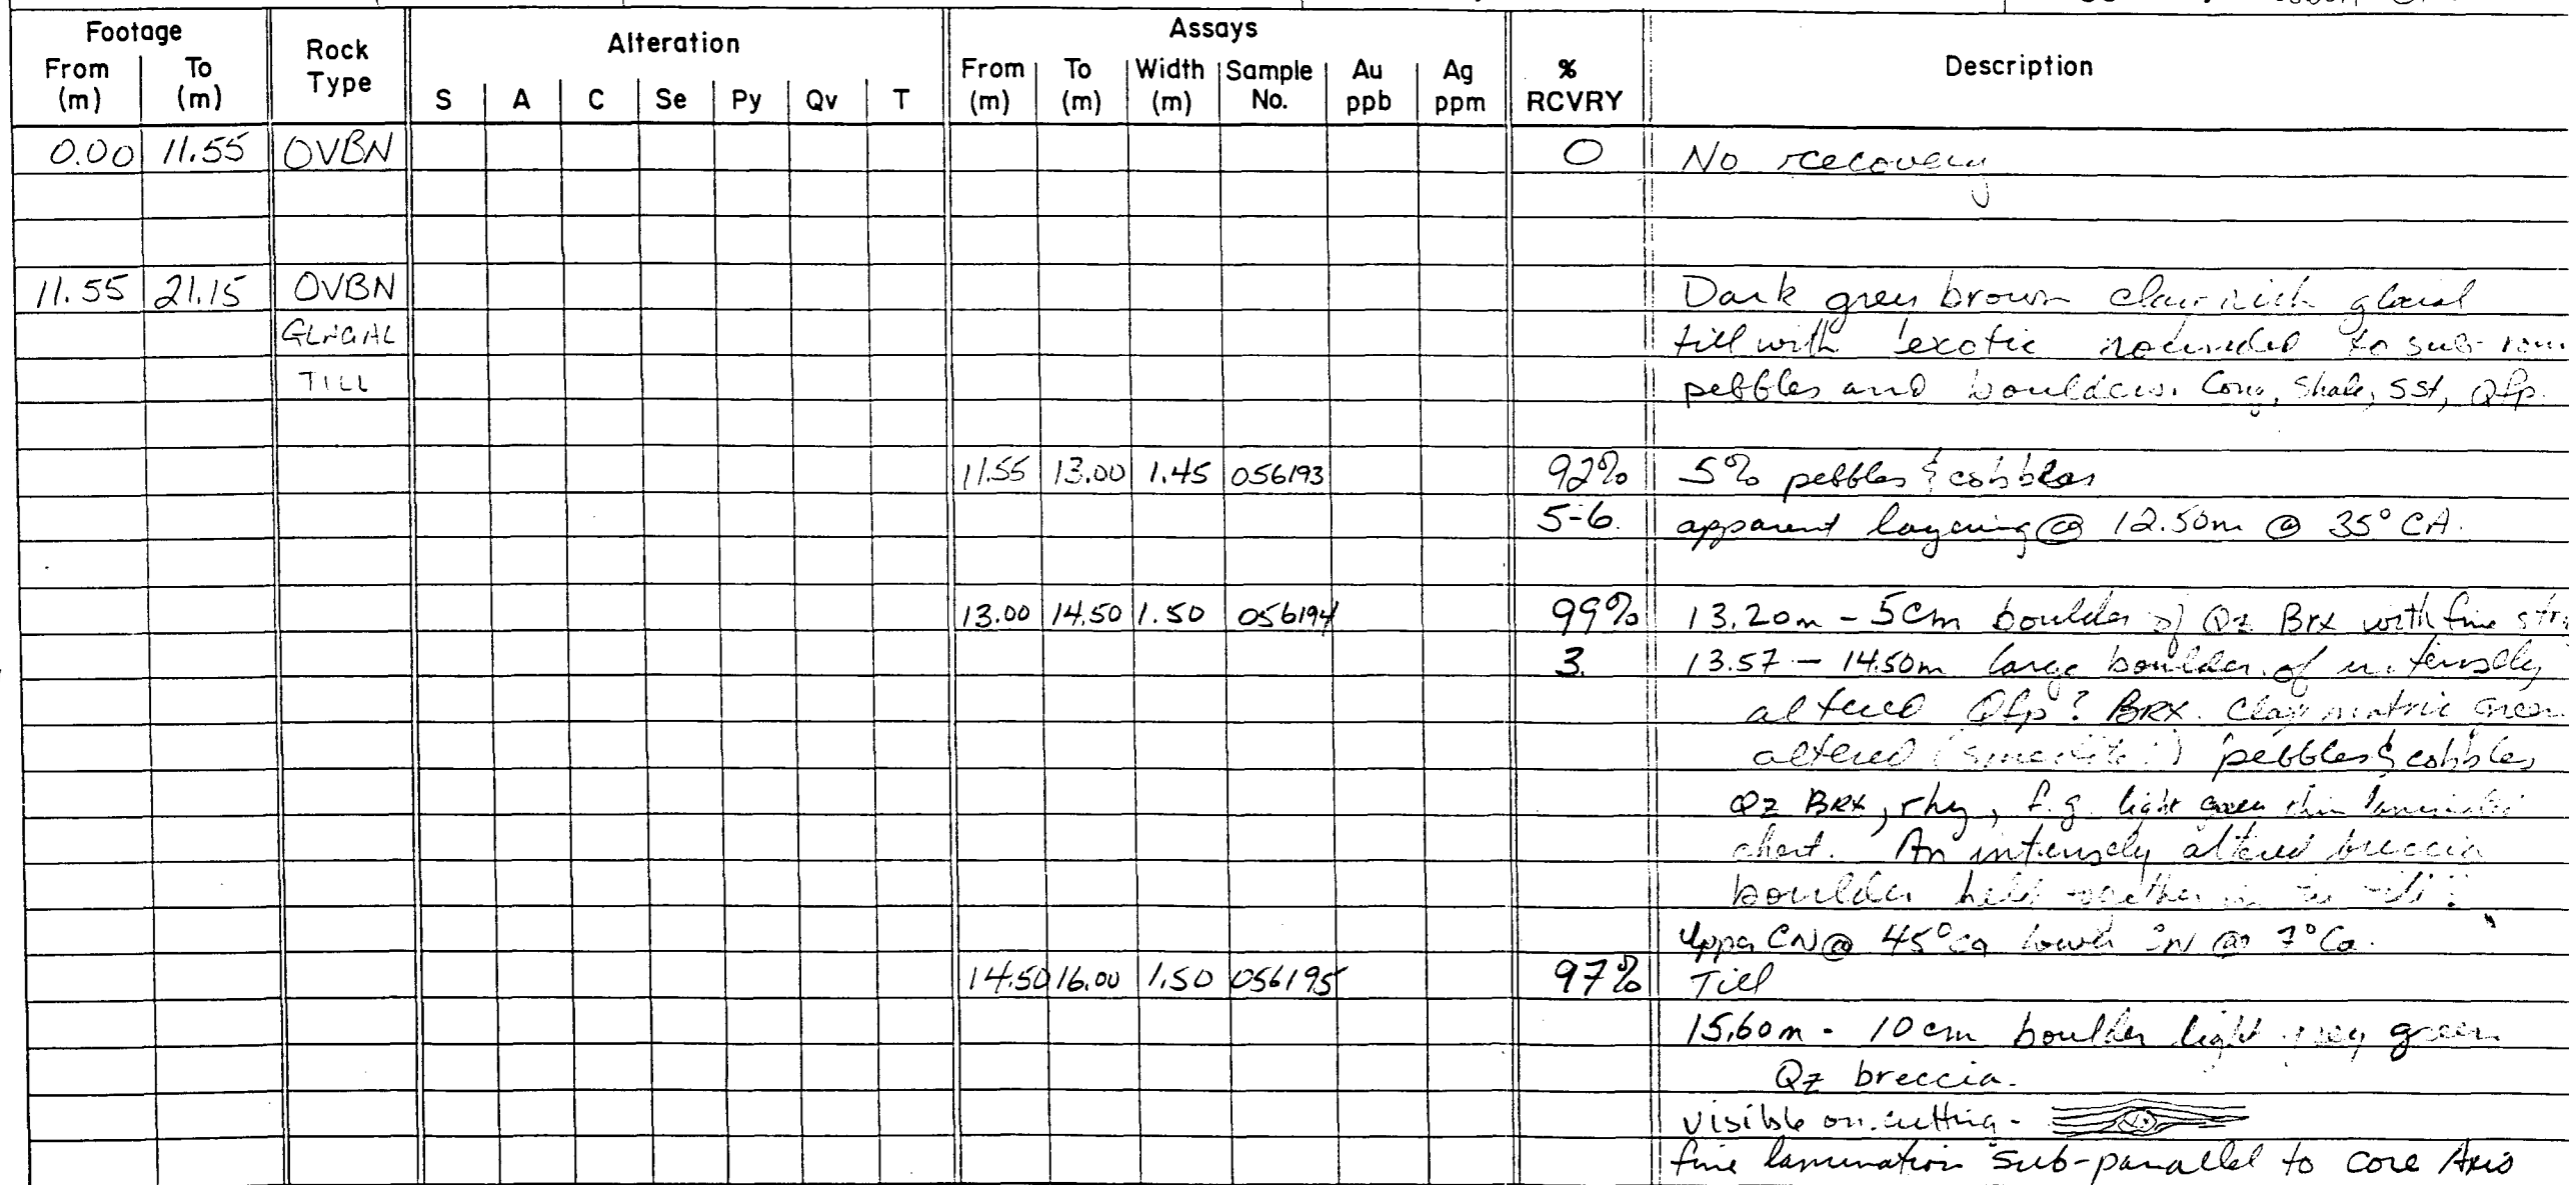 Footage Rock Type Alteration Assays % RCVRY Description
From (m) To (m) S A C Se Py Qv T From (m) To (m) Width (m) Sample No. Au ppb Ag ppm
0.00 11.55 OVBN 0 No recovery
11.55 21.15 OVBN Dark grey brown clay rich glacial
till with exotic rounded to sub-
TILL pebbles and boulders. Cong, Shale, SSt, Qfp.
11.55 13.00 1.45 056193 92% 5% pebbles & cobbles
5-6. apparent layering @ 12.50m @ 35° CA.
13.00 14.50 1.50 056194 99% 13.20m - 5cm boulder of Qz Brx with fine
3. 13.57 - 14.50m large boulder of intensely
altered Qfp? BRX. Clay matrix
altered pebbles & cobbles
Qz BRX, rhy, f.g. light green thin
chert. An intensely altered breccia
boulder held together in
Upper CN @ 45° Ca lower CN @ 7° Ca.
14.50 16.00 1.50 056195 97% Till
15.60m - 10cm boulder light grey green
Qz breccia.
visible on cutting -
fine lamination sub-parallel to core Axis